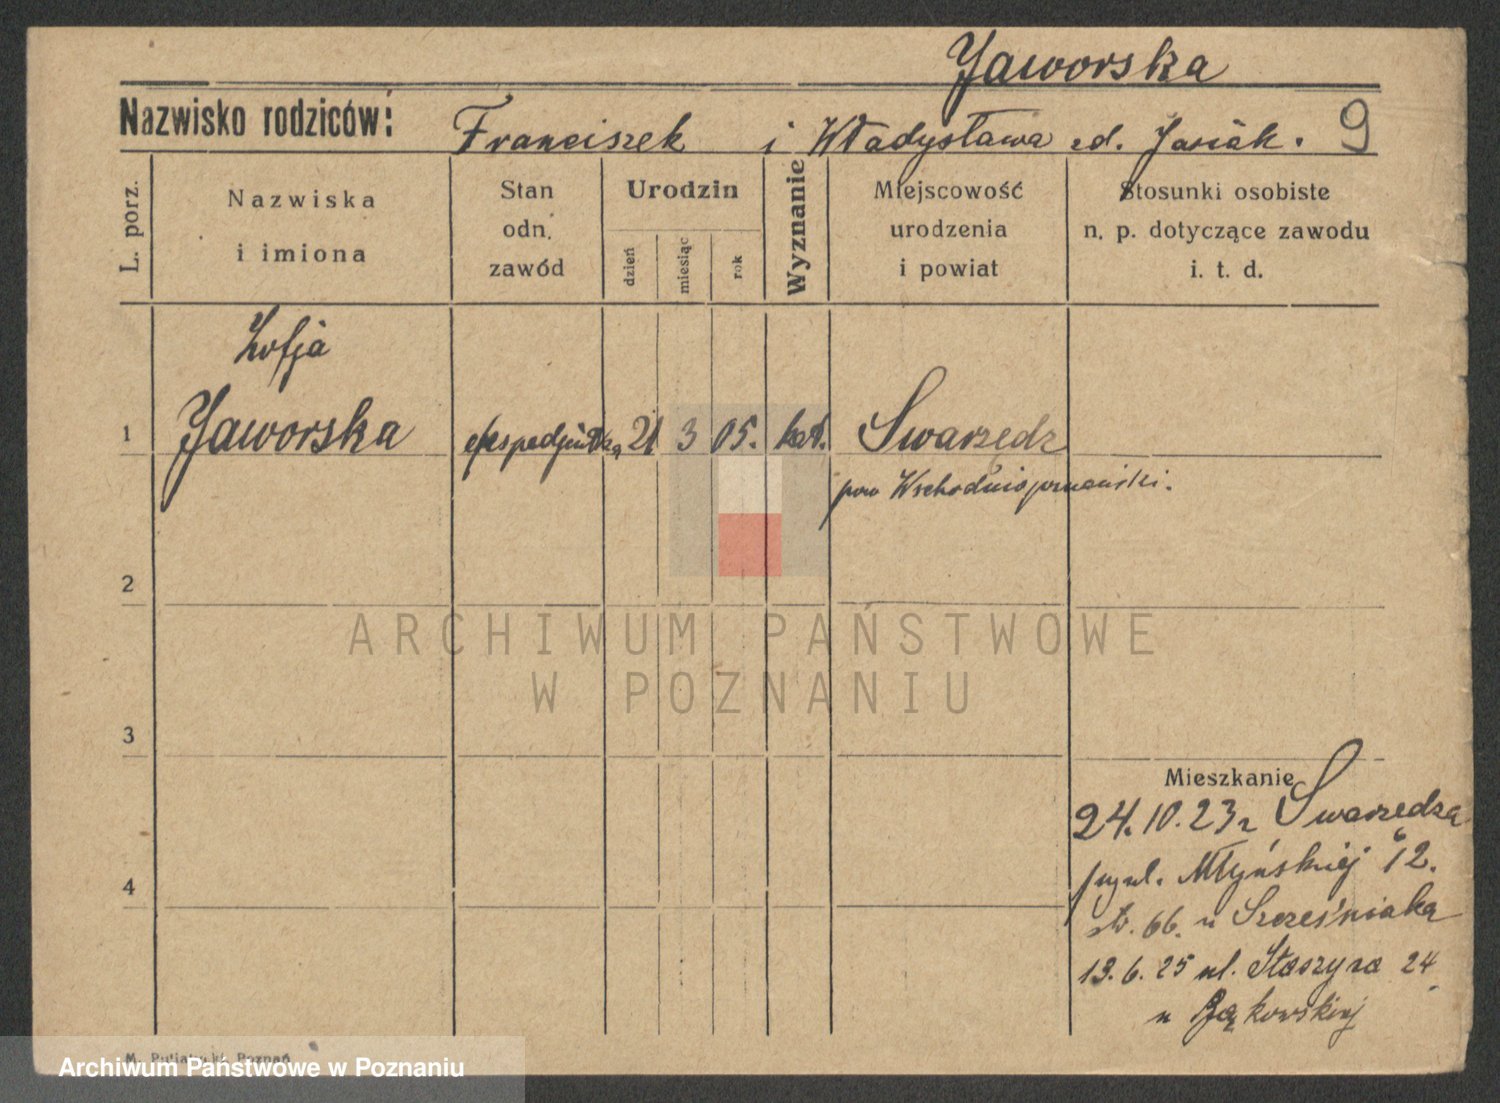 Jaworska
Nazwisko rodziców: Franciszek i Władysława zd. Jasiak. 9
L. porz.
Nazwiska
i imiona
Stan
odn.
zawód
Urodzin
dzień
miesiąc
rok
Wyznanie
Miejscowość
urodzenia
i powiat
Stosunki osobiste
n. p. dotyczące zawodu
i. t. d.
Zofja
1 Jaworska ekspedjentka 21 3 05. kat. Swarzędz
pow Wschodniopoznański.
2
ARCHIWUM PAŃSTWOWE
W POZNANIU
3
Mieszkanie
24.10.23 z Swarzędza
ul. Młyńskiej 12.
66. u Szcześniaka
4
13.6.25 ul. Staszyca 24
u Bąkowskiej
M. Poznań
Archiwum Państwowe w Poznaniu